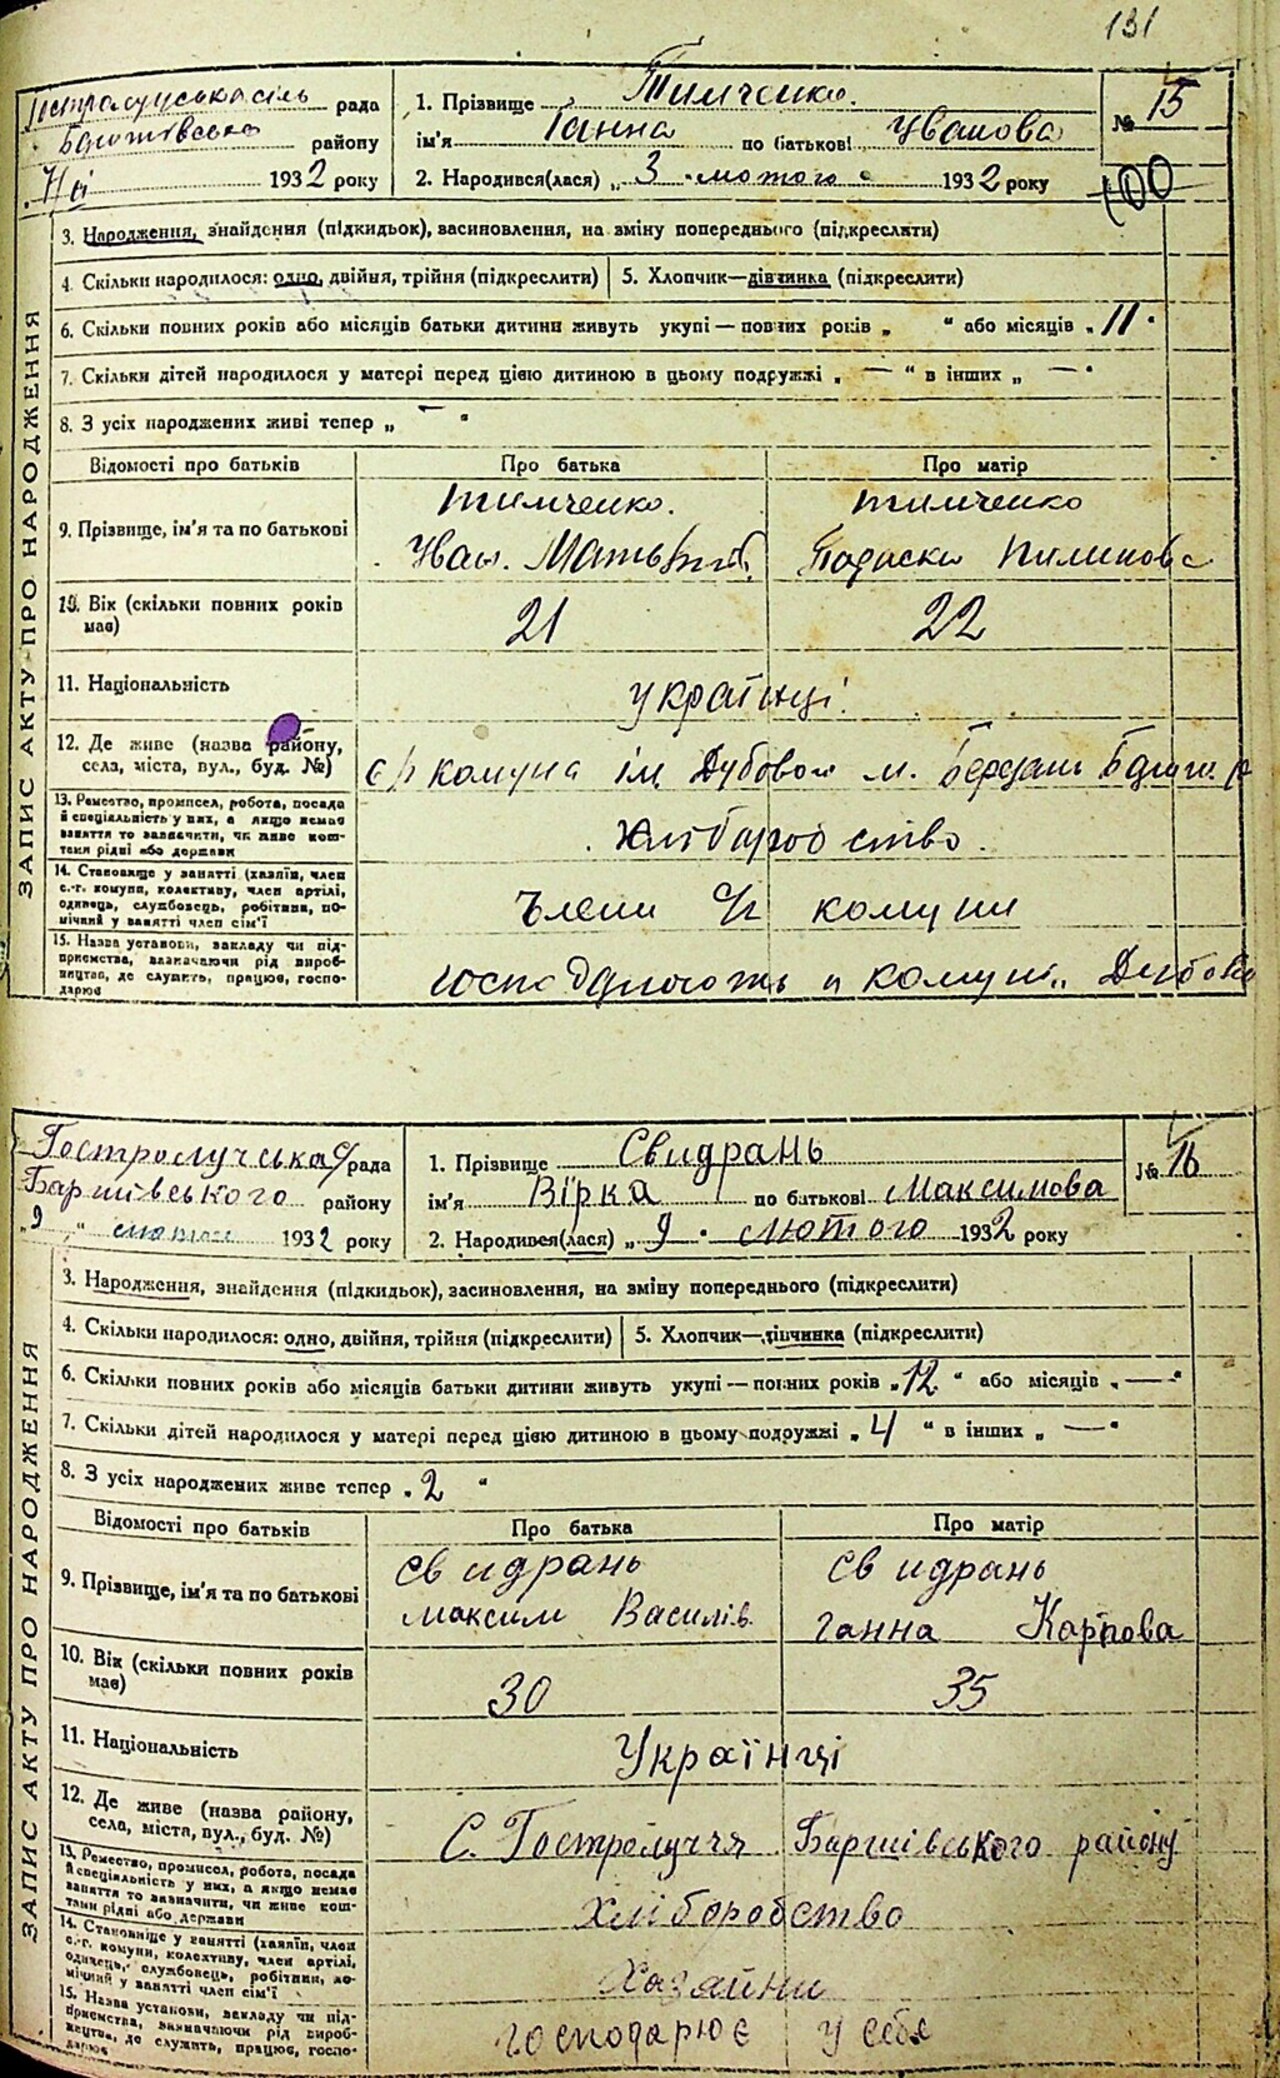 131
Гостролуцька сіль рада
району
193 2 року
1. Прізвище Тимченко.
ім'я Ганна по батькові Иванова
2. Народився(лася) „ 3 " лютого 193 2 року
№ 15
100
3. Народження, знайдення (підкидьок), засиновлення, на зміну попереднього (підкреслити)
4. Скільки народилося: одно, двійня, трійня (підкреслити) 5. Хлопчик—дівчинка (підкреслити)
6. Скільки повних років або місяців батьки дитини живуть укупі — повних років „ “ або місяців „ 11 "
7. Скільки дітей народилося у матері перед цією дитиною в цьому подружжі „ — “ в інших „ — “
8. З усіх народжених живі тепер „ — “
ЗАПИС АКТУ ПРО НАРОДЖЕННЯ
Відомості про батьків Про батька Про матір
9. Прізвище, ім'я та по батькові
Тимченко. Тимченко
Иван. Параска Пилипова
10. Вік (скільки повних років має) 21 22
11. Національність українці
12. Де живе (назва району, села, міста, вул., буд. №)
с/г комуна ім. Дубового м. Березань
13. Ремество, промисел, робота, посада й спеціальність у них, а якщо немає заняття то зазначити, чи живе коштами рідні або держави
Хліборобство.
14. Становище у занятті (хазяїн, член с.-г. комуни, колективу, член артілі, одинець, службовець, робітник, помічний у занятті член сім'ї
Члени с/г комуни
15. Назва установи, закладу чи підприємства, зазначаючи рід виробництва, де служить, працює, господарює
господарюють в комуні
Гостролучська с/рада
Баришівського району
„ 9 “ лютого 193 2 року
1. Прізвище Свидрань
ім'я Вірка по батькові Максимова
2. Народився(лася) „ 9 " лютого 193 2 року
№ 16
3. Народження, знайдення (підкидьок), засиновлення, на зміну попереднього (підкреслити)
4. Скільки народилося: одно, двійня, трійня (підкреслити) 5. Хлопчик—дівчинка (підкреслити)
6. Скільки повних років або місяців батьки дитини живуть укупі — повних років „ 12 “ або місяців „ — “
7. Скільки дітей народилося у матері перед цією дитиною в цьому подружжі „ 4 “ в інших „ — “
8. З усіх народжених живе тепер „ 2 “
ЗАПИС АКТУ ПРО НАРОДЖЕННЯ
Відомості про батьків Про батька Про матір
9. Прізвище, ім'я та по батькові
Свидрань Свидрань
максим Василів. ганна Карпова
10. Вік (скільки повних років має) 30 35
11. Національність Українці
12. Де живе (назва району, села, міста, вул., буд. №)
С. Гостролуччя Баришівського району
13. Ремество, промисел, робота, посада й спеціальність у них, а якщо немає заняття то зазначити, чи живе коштами рідні або держави
Хліборобство
14. Становище у занятті (хазяїн, член с.-г. комуни, колективу, член артілі, одинець, службовець, робітник, помічний у занятті член сім'ї
Хазяйни
15. Назва установи, закладу чи підприємства, зазначаючи рід виробництва, де служить, працює, господарює
господарює у себе